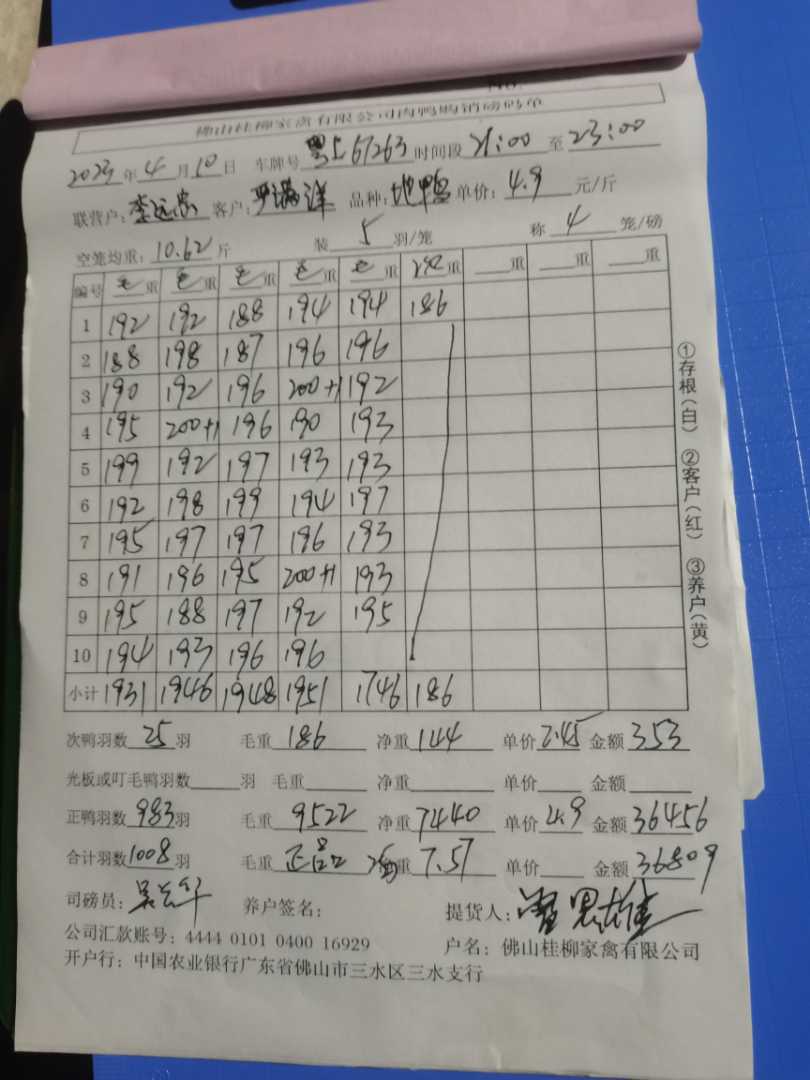 佛山桂柳家禽有限公司肉鸭购销磅码单
2023年4月10日 车牌号 粤E67263 时间段 21:00 至 23:00
联营户: 李远 客户: 罗满洋 品种: 地鸭 单价: 4.9 元/斤
空笼均重: 10.62斤 装 5 羽/笼 称 4 笼/磅
编号 毛重 毛重 毛重 毛重 毛重 重 重 重 重
1 192 192 188 194 194 186
2 188 198 187 196 196
3 190 192 196 200+1 192
4 195 200+1 196 190 193
5 199 192 197 193 193
6 192 198 199 194 197
7 195 197 197 196 193
8 191 196 195 200+1 193
9 195 188 197 192 195
10 194 193 196 196
小计 1931 1946 1948 1951 1746 186
①存根(白) ②客户(红) ③养户(黄)
次鸭羽数 25 羽 毛重 186 净重 144 单价 2.45 金额 353
光板或叮毛鸭羽数 羽 毛重 净重 单价 金额
正鸭羽数 983 羽 毛重 9522 净重 7440 单价 4.9 金额 36456
合计羽数 1008 羽 毛重 正品 重 7.57 单价 金额 36809
司磅员: 养户签名: 提货人:
公司汇款账号: 4444 0101 0400 16929 户名: 佛山桂柳家禽有限公司
开户行: 中国农业银行广东省佛山市三水区三水支行